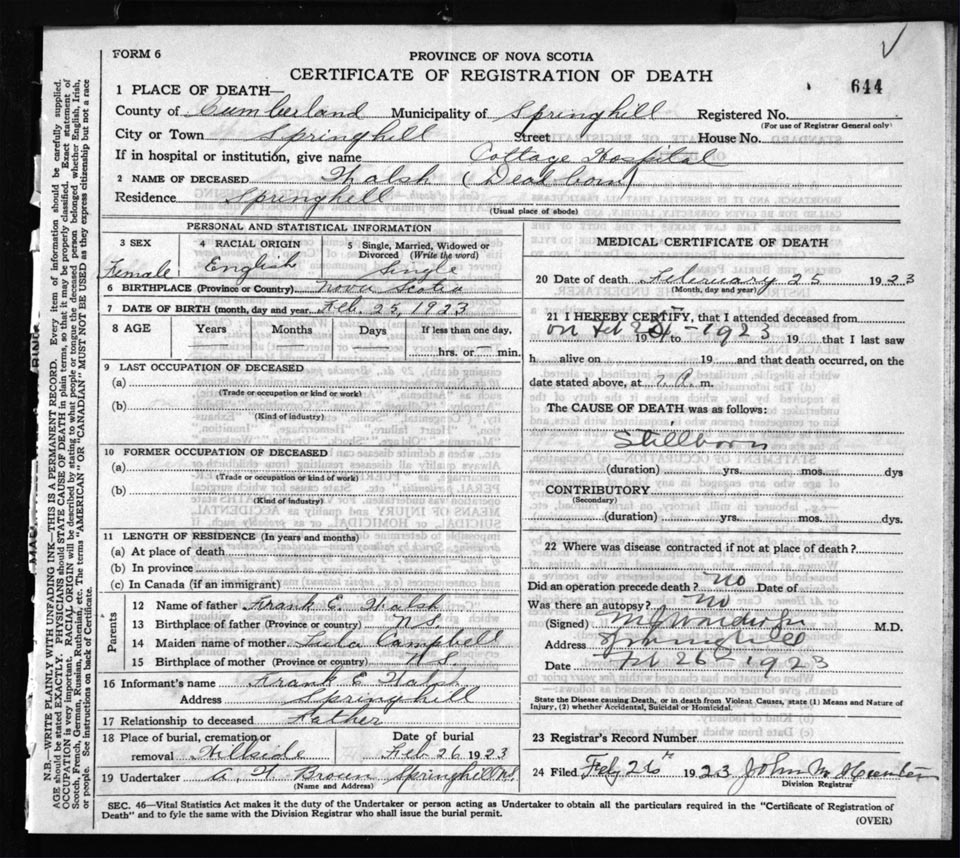 FORM 6
PROVINCE OF NOVA SCOTIA
CERTIFICATE OF REGISTRATION OF DEATH
644
1 PLACE OF DEATH—
County of Cumberland Municipality of Springhill Registered No.
(For use of Registrar General only)
City or Town Springhill Street House No.
If in hospital or institution, give name Cottage Hospital
2 NAME OF DECEASED Walsh (Dead born)
Residence Springhill
(Usual place of abode)
PERSONAL AND STATISTICAL INFORMATION
3 SEX 4 RACIAL ORIGIN 5 Single, Married, Widowed or Divorced (Write the word)
Female English Single
6 BIRTHPLACE (Province or Country) Nova Scotia
7 DATE OF BIRTH (month, day and year) Feb. 25, 1923
8 AGE Years Months Days If less than one day,
hrs. or min.
9 LAST OCCUPATION OF DECEASED
(a)
(Trade or occupation or kind or work)
(b)
(Kind of industry)
10 FORMER OCCUPATION OF DECEASED
(a)
(Trade or occupation or kind of work)
(b)
(Kind of industry)
11 LENGTH OF RESIDENCE (In years and months)
(a) At place of death
(b) In province
(c) In Canada (if an immigrant)
Parents
12 Name of father Frank E. Walsh
13 Birthplace of father (Province or country) N.S.
14 Maiden name of mother Lula Campbell
15 Birthplace of mother (Province or country) N.S.
16 Informant's name Frank E Walsh
Address Springhill
17 Relationship to deceased Father
18 Place of burial, cremation or removal Hillside Date of burial Feb 26 1923
19 Undertaker A. W. Brown Springhill N.S.
(Name and Address)
MEDICAL CERTIFICATE OF DEATH
20 Date of death February 25 1923
(Month, day and year)
21 I HEREBY CERTIFY, that I attended deceased from
on Feb 19 to 1923 19 that I last saw
h alive on 19 and that death occurred, on the
date stated above, at m.
The CAUSE OF DEATH was as follows:
Stillborn
(duration) yrs. mos. dys
CONTRIBUTORY
(Secondary)
(duration) yrs. mos. dys.
22 Where was disease contracted if not at place of death?
Did an operation precede death? no Date of
Was there an autopsy? no
(Signed) M.D.
Address Springhill
Date Feb 26 1923
State the Disease causing Death, or in death from Violent Causes, state (1) Means and Nature of
Injury, (2) whether Accidental, Suicidal or Homicidal.
23 Registrar's Record Number
24 Filed Feby 26 1923 John M Hunter
Division Registrar
SEC. 46—Vital Statistics Act makes it the duty of the Undertaker or person acting as Undertaker to obtain all the particulars required in the "Certificate of Registration of
Death" and to fyle the same with the Division Registrar who shall issue the burial permit.
(OVER)
N.B.—WRITE PLAINLY WITH UNFADING INK—THIS IS A PERMANENT RECORD. Every item of information should be carefully supplied.
AGE should be stated EXACTLY. PHYSICIANS should STATE CAUSE OF DEATH in plain terms, so that it may be properly classified. Exact statement of
OCCUPATION is very important. RACIAL ORIGIN will be described by stating to what people or tongue the deceased person belonged whether English, Irish,
Scotch, French, German, Russian, Ruthenian, etc. The terms "AMERICAN" OR "CANADIAN" MUST NOT BE USED as they express citizenship but not a race
or people. See instructions on back of Certificate.